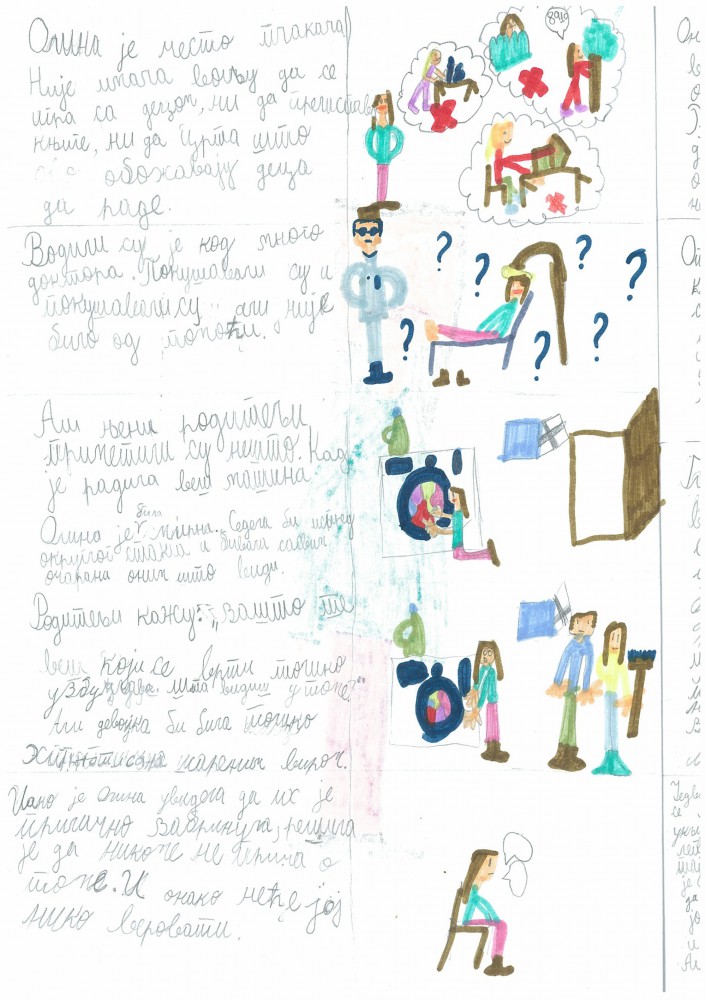 Олина је често плакала.
Није имала вољу да се
игра са децом, ни да прелистава
књиге, ни да црта што
сва обожавају деца
да раде.
Водили су је код много
доктора. Покушавали су и
покушавали су, али није
било од помоћи.
Али њени родитељи
приметили су нешто. Кад
је радила веш машина
Олина је била мирна. Седела би испред
округлог стакла и бивала сасвим
очарана оним што види.
Родитељи кажу: „Зашто те
веш који се врти толико
узбуђава. Шта видиш у томе?"
Али девојка би била толико
шареним виром.
Како је Олина увидела да их је
прилично забринула, решила
је да никоме не прича о
томе. И онако неће јој
нико веровати.